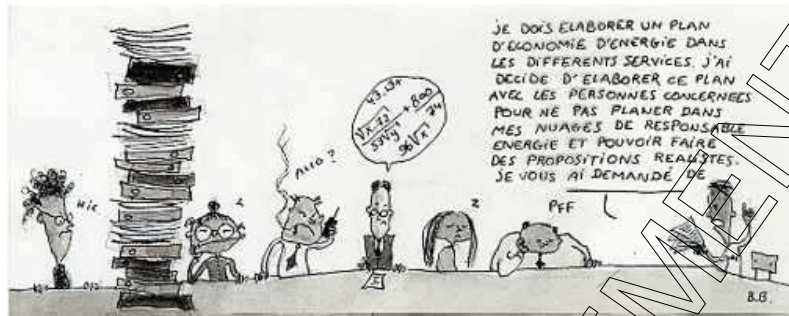 JE DOIS ELABORER UN PLAN
D'ECONOMIE D'ENERGIE DANS
LES DIFFERENTS SERVICES. J'AI
DECIDE D'ELABORER CE PLAN
AVEC LES PERSONNES CONCERNEES
POUR NE PAS PLANER DANS
MES NUAGES DE RESPONSABLE
ENERGIE ET POUVOIR FAIRE
DES PROPOSITIONS REALISTES.
JE VOUS AI DEMANDÉ DE
ALLO ?
HIC
PFF
B.B.